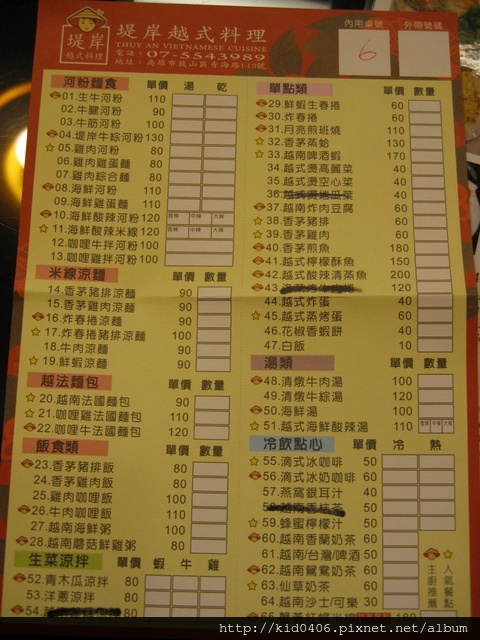 堤岸
越式料理
堤岸越式料理
THUY AN VIETNAMESE CUISINE
電話:07-5543989
地址:高雄市鼓山區青海路143號
內用桌號
外帶號碼
6
河粉麵食 單價 湯 乾
01.生牛河粉 110
02.牛腱河粉 90
03.牛筋河粉 100
04.堤岸牛綜河粉 130
05.雞肉河粉 80
06.雞肉雞蛋麵 80
07.雞肉綜合麵 80
08.海鮮河粉 110
09.海鮮雞蛋麵 110
10.海鮮酸辣河粉 120 微辣 中辣 大辣
11.海鮮酸辣米線 120 微辣 中辣 大辣
12.咖哩牛拌河粉 100
13.咖哩雞拌河粉 100
米線涼麵 單價 數量
14.香茅豬排涼麵 90
15.香茅雞肉涼麵 90
16.炸春捲涼麵 90
17.炸春捲豬排涼麵 100
18.牛肉涼麵 90
19.鮮蝦涼麵 90
越法麵包 單價 數量
20.越南法國麵包 90
21.咖哩雞法國麵包 110
22.咖哩牛法國麵包 120
飯食類 單價 數量
23.香茅豬排飯 80
24.香茅雞肉飯 80
25.雞肉咖哩飯 100
26.牛肉咖哩飯 110
27.越南海鮮粥 100
28.越南蘑菇鮮雞粥 80
生菜涼拌 單價 蝦 牛 雞
52.青木瓜涼拌 80
53.洋蔥涼拌 80
54.
單點類 單價 數量
29.鮮蝦生春捲 60
30.炸春捲 60
31.月亮煎班燒 110
32.香茅蒸蛤 130
33.越南啤酒蝦 170
34.越式燙高麗菜 40
35.越式燙空心菜 40
36.越式燙地瓜菜 40
37.越南炸肉豆腐 60
38.香茅豬排 60
39.香茅雞肉 60
40.香茅煎魚 180
41.越式檸檬酥魚 150
42.越式酸辣清蒸魚 200
43. 120
44.越式炸蛋 40
45.越式蒸烤蛋 60
46.花椒香蝦餅 40
47.白飯 10
湯類 單價 數量
48.清燉牛肉湯 100
49.清燉牛綜湯 120
50.海鮮湯 100
51.越式海鮮酸辣湯 110 微辣 中辣 大辣
冷飲點心 單價 冷 熱
55.滴式冰咖啡 50
56.滴式冰奶咖啡 60
57.燕窩銀耳汁 40
58. 50
59.蜂蜜檸檬汁 50
60.越南香蘭奶茶 60
61.越南/台灣啤酒 50
62.越南鴛鴦奶茶 60
63.仙草奶茶 60
64.越南沙士/可樂 30
180
主廚推薦
人氣餐點
http://kid0406.pixnet.net/album